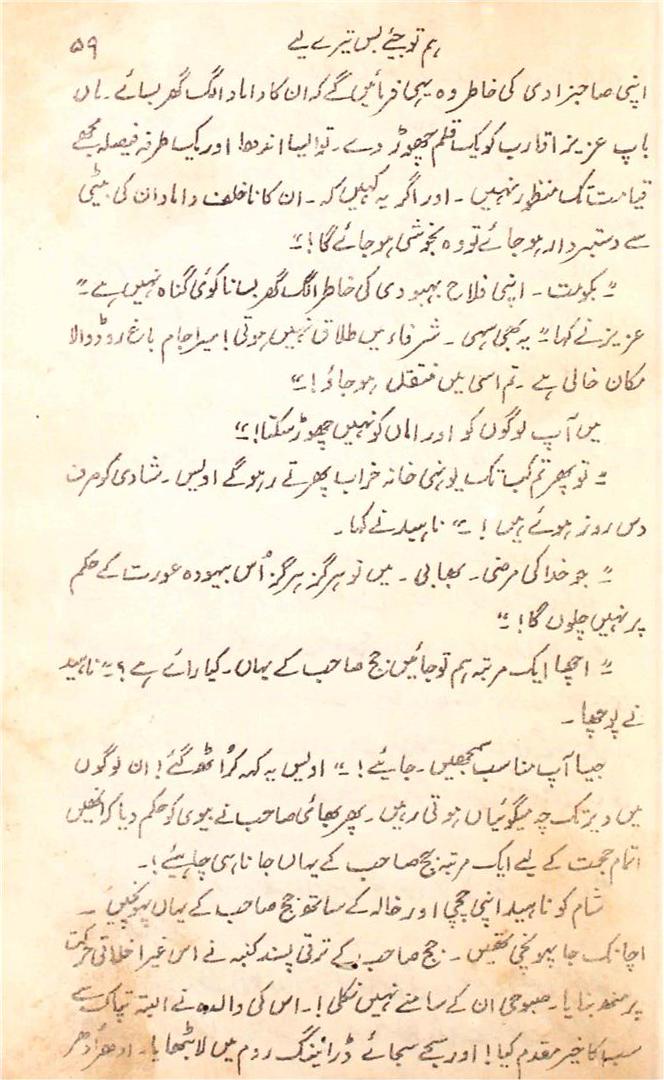 ہم تو جئے بس تیرے لیے ۵۹
اپنی صاحبزادی کی خاطر وہ یہی فرمائیں گے کہ ان کا داماد الگ گھر بسائے۔ ماں
باپ عزیز اقارب کو یک قلم چھوڑ دے۔ تو ایسا انوکھا اور یک طرفہ فیصلہ مجھے
قیامت تک منظور نہیں۔ اور اگر یہ کہیں کہ۔ ان کا ناخلف داماد ان کی بیٹی
سے دستبردار ہو جائے تو وہ بخوشی ہو جائے گا!"
" بکومت۔ اپنی فلاح بہبودی کی خاطر الگ گھر بسانا کوئی گناہ نہیں ہے"
عزیز نے کہا" یہ بھی سہی۔ شرفاء میں طلاق نہیں ہوتی! میرا جام باغ روڈ والا
مکان خالی ہے۔ تم اسی میں منتقل ہو جاؤ!"
میں آپ لوگوں کو اور اماں کو نہیں چھوڑ سکتا!"
" تو پھر تم کب تک یونہی خانہ خراب پھرتے رہو گے اویس۔ شادی کو صرف
دس روز ہوئے ہیں!" ناہید نے کہا۔
" جو خدا کی مرضی۔ بھابی۔ میں تو ہرگز ہرگز اُس بیہودہ عورت کے حکم
پر نہیں چلوں گا!"
" اچھا ایک مرتبہ ہم تو جائیں جج صاحب کے یہاں۔ کیا رائے ہے؟" ناہید
نے پوچھا۔
جیسا آپ مناسب سمجھیں۔ جایئے!" اویس یہ کہہ کر اُٹھ گئے! ان لوگوں
میں دیر تک چہ میگوئیاں ہوتی رہیں۔ پھر بھائی صاحب نے بیوی کو حکم دیا کہ انھیں
اتمام حجت کے لیے ایک مرتبہ جج صاحب کے یہاں جانا ہی چاہیئے!۔
شام کو ناہید اپنی چچی اور خالہ کے ساتھ جج صاحب کے یہاں پہونچیں۔
اچانک جا پہونچی تھیں۔ جج صاحب کے ترقی پسند کنبہ نے اس غیر اخلاقی حرکت
پر منھ بنایا۔ صبوحی ان کے سامنے نہیں نکلی!۔ اس کی والدہ نے البتہ تپاک سے
سب کا خیر مقدم کیا! اور سجے سجائے ڈرائینگ روم میں لا بٹھایا۔ ادھر اُدھر